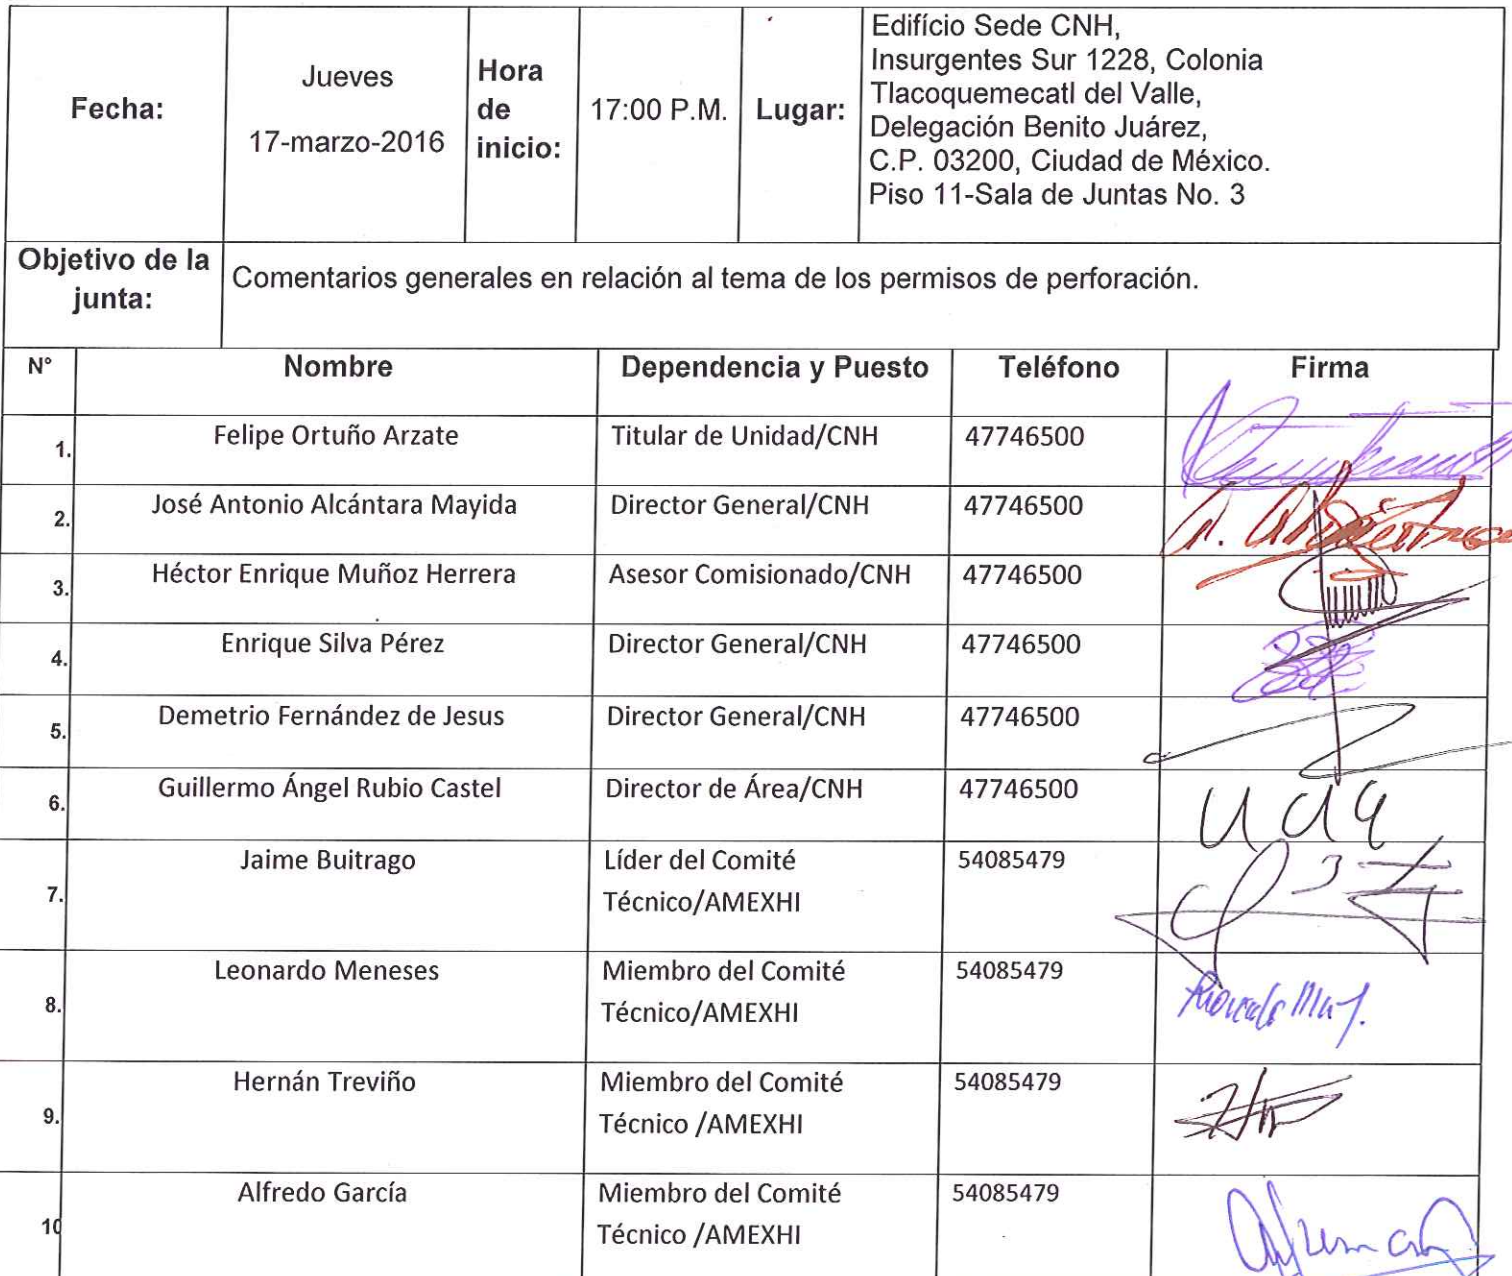 Fecha:
Jueves
17-marzo-2016
Hora
de
inicio:
17:00 P.M.
Lugar:
Edifício Sede CNH,
Insurgentes Sur 1228, Colonia
Tlacoquemecatl del Valle,
Delegación Benito Juárez,
C.P. 03200, Ciudad de México.
Piso 11-Sala de Juntas No. 3
Objetivo de la
junta:
Comentarios generales en relación al tema de los permisos de perforación.
N° Nombre Dependencia y Puesto Teléfono Firma
1. Felipe Ortuño Arzate Titular de Unidad/CNH 47746500
2. José Antonio Alcántara Mayida Director General/CNH 47746500
3. Héctor Enrique Muñoz Herrera Asesor Comisionado/CNH 47746500
4. Enrique Silva Pérez Director General/CNH 47746500
5. Demetrio Fernández de Jesus Director General/CNH 47746500
6. Guillermo Ángel Rubio Castel Director de Área/CNH 47746500
7. Jaime Buitrago Líder del Comité 54085479
Técnico/AMEXHI
8. Leonardo Meneses Miembro del Comité 54085479
Técnico/AMEXHI
9. Hernán Treviño Miembro del Comité 54085479
Técnico /AMEXHI
10 Alfredo García Miembro del Comité 54085479
Técnico /AMEXHI